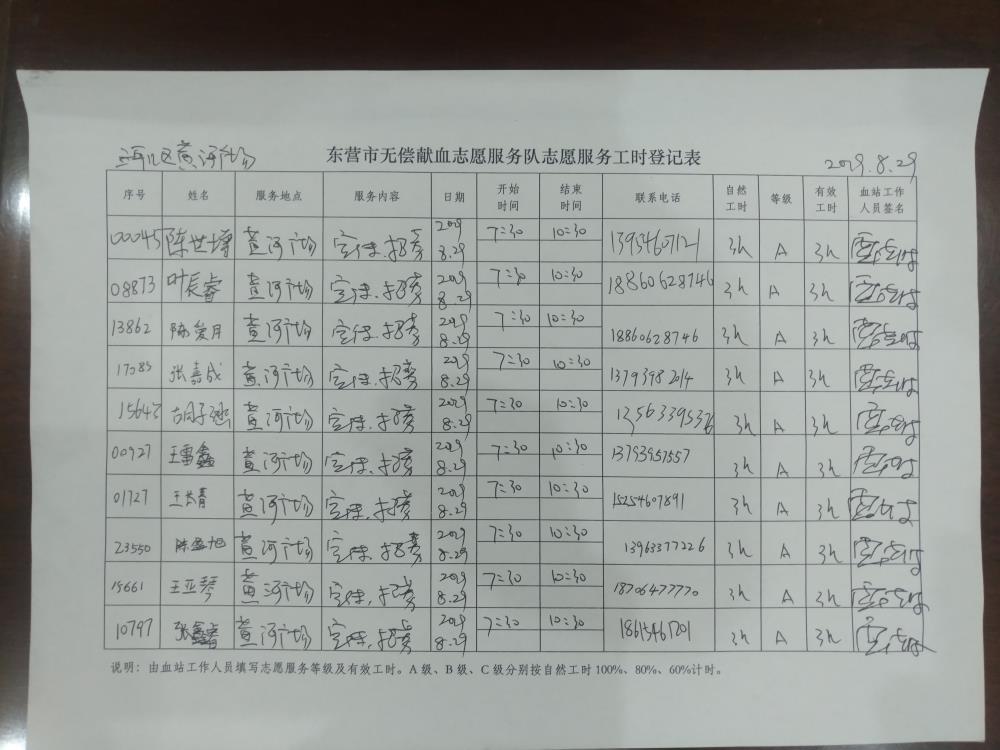 黄河广场
东营市无偿献血志愿服务队志愿服务工时登记表
2019.8.29
序号 姓名 服务地点 服务内容 日期 开始时间 结束时间 联系电话 自然工时 等级 有效工时 血站工作人员签名
00045 陈世增 黄河广场 宣传.招募 2019 8.29 7:30 10:30 13954607121 3h A 3h
08873 叶长睿 黄河广场 宣传.招募 2019 8.29 7:30 10:30 18860628746 3h A 3h
13862 陈爱月 黄河广场 宣传.招募 2019 8.29 7:30 10:30 18860628746 3h A 3h
17083 张嘉成 黄河广场 宣传.招募 2019 8.29 7:30 10:30 13793982014 3h A 3h
15647 胡子涵 黄河广场 宣传.招募 2019 8.29 7:30 10:30 13563395376 3h A 3h
00927 王雷鑫 黄河广场 宣传.招募 2019 8.29 7:30 10:30 13793957557 3h A 3h
01727 王长青 黄河广场 宣传.招募 2019 8.29 7:30 10:30 15254607891 3h A 3h
23550 黄河广场 宣传.招募 2019 8.29 7:30 10:30 13963377226 3h A 3h
15661 王亚琴 黄河广场 宣传.招募 2019 8.29 7:30 10:30 18706477770 3h A 3h
10797 黄河广场 宣传.招募 2019 8.29 7:30 10:30 18615461701 3h A 3h
说明：由血站工作人员填写志愿服务等级及有效工时。A 级、B 级、C 级分别按自然工时 100%、80%、60%计时。